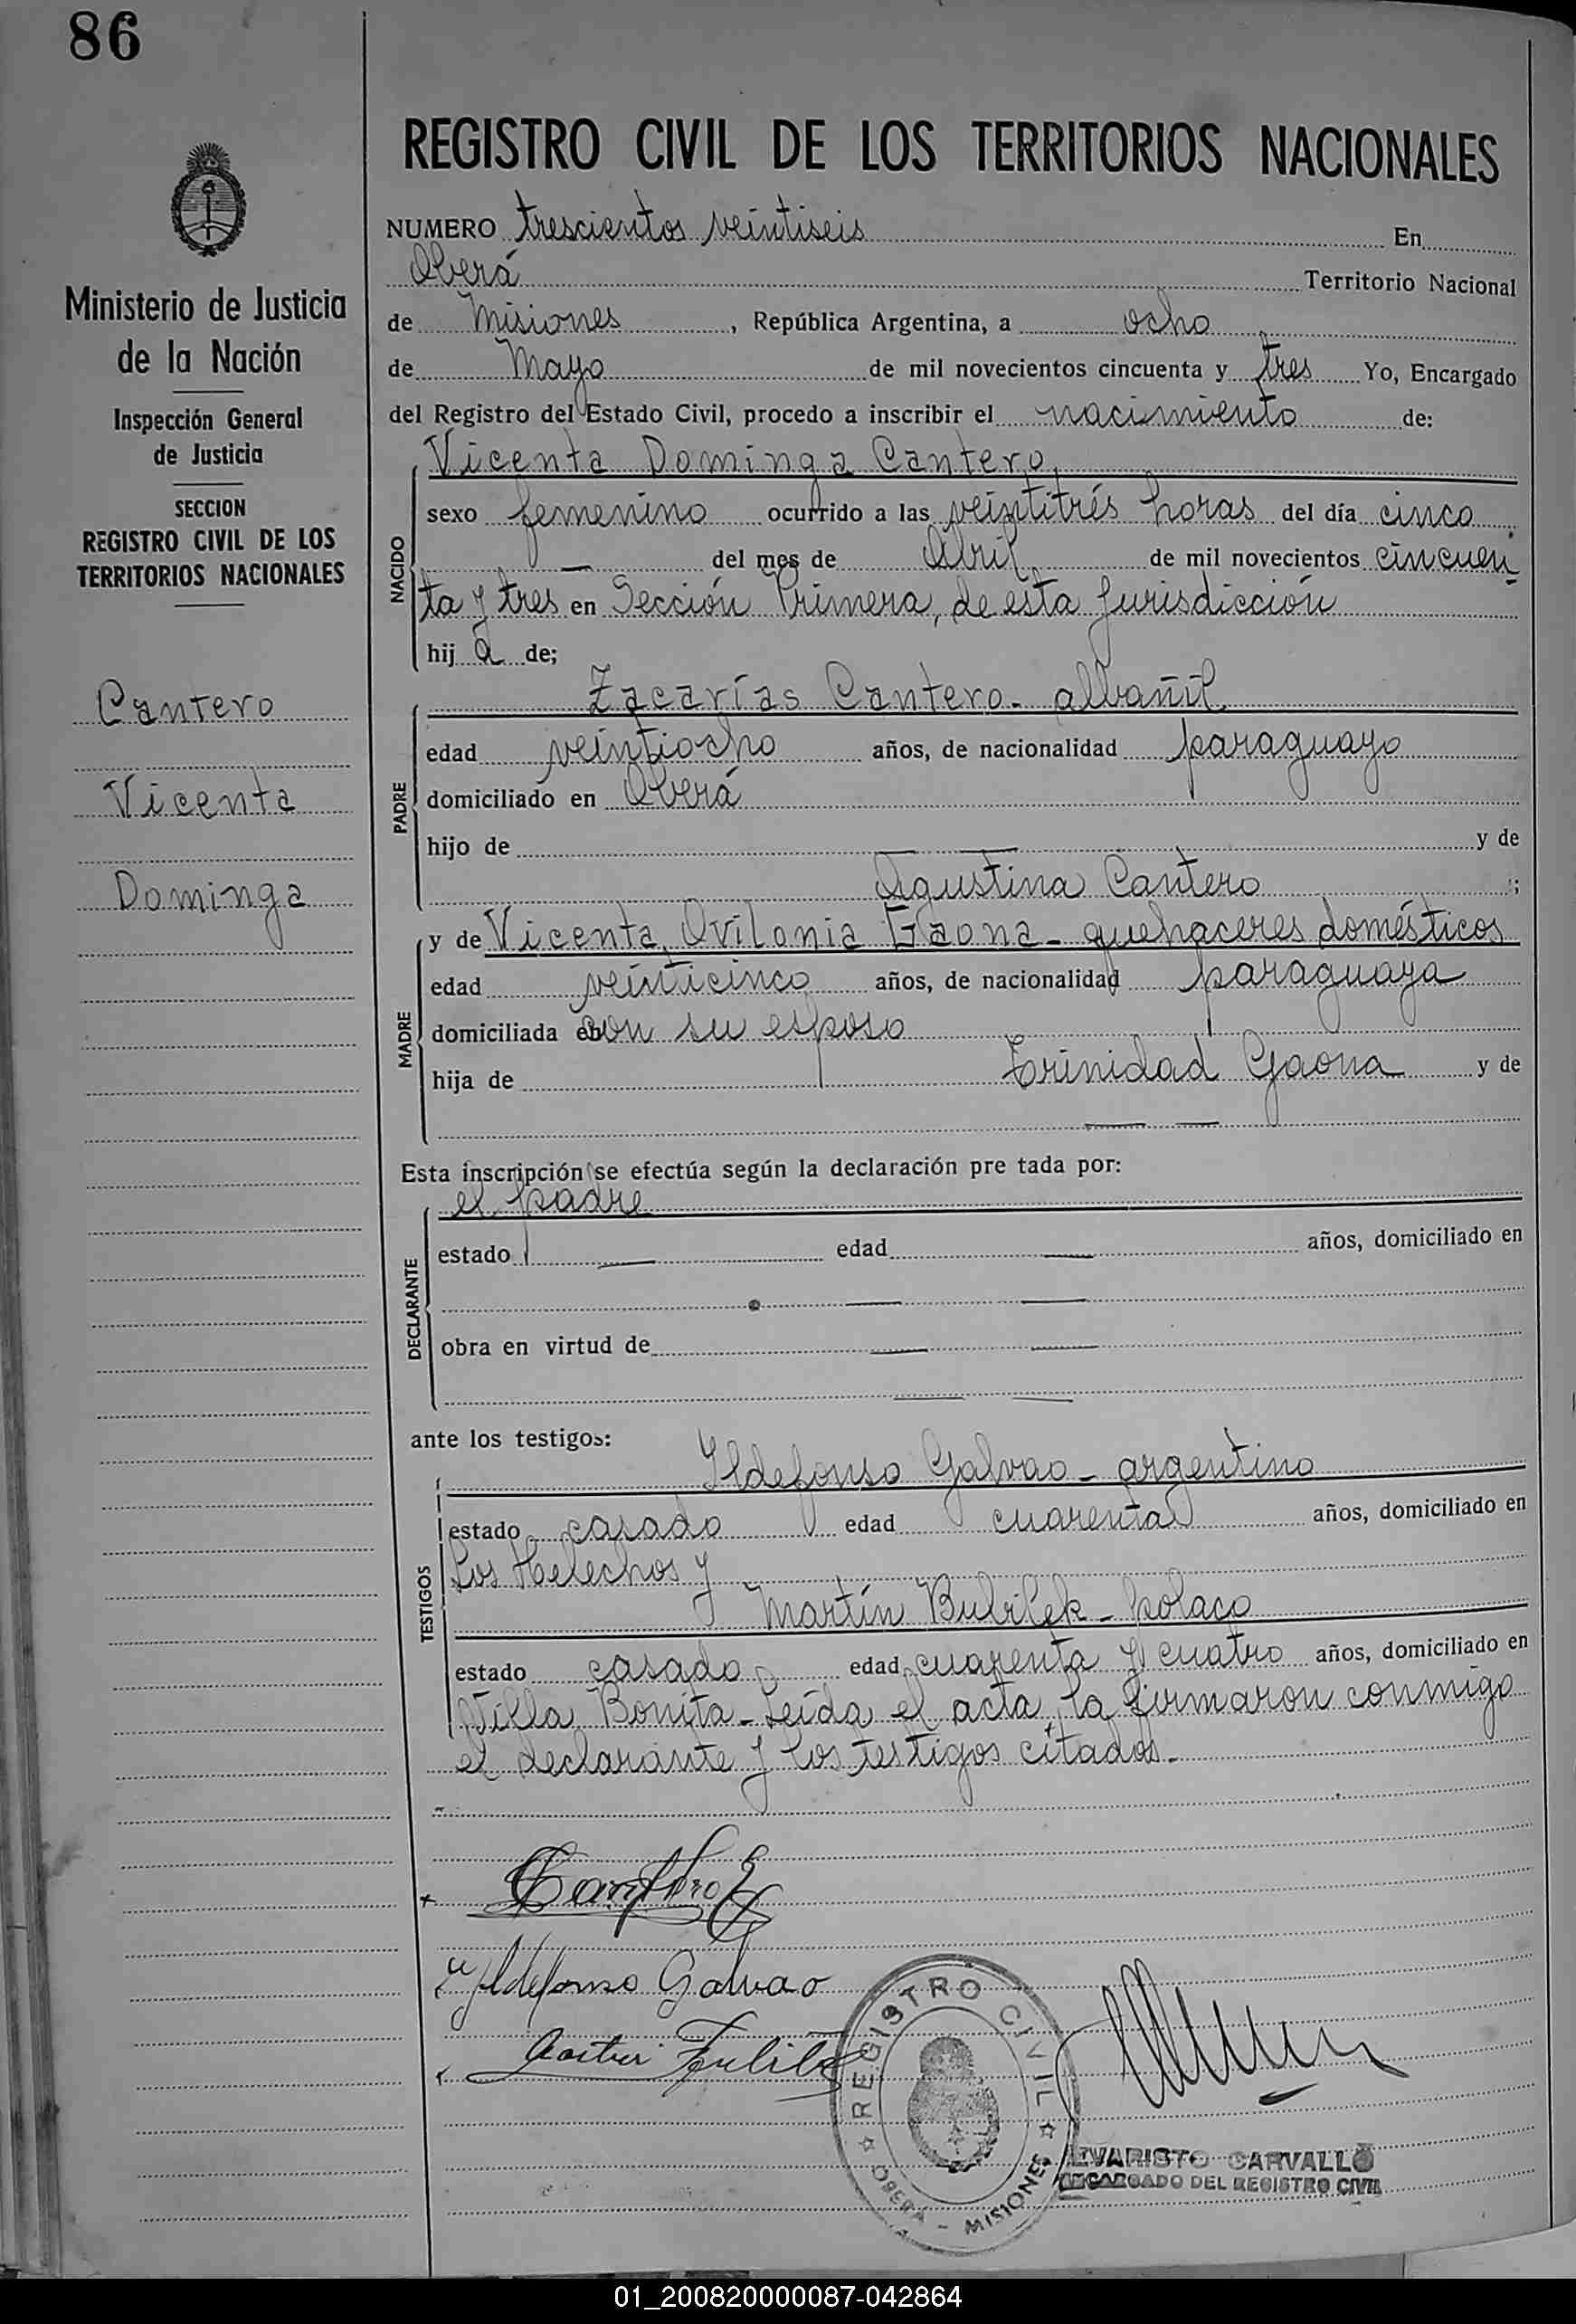 86
REGISTRO CIVIL DE LOS TERRITORIOS NACIONALES
Ministerio de Justicia
de la Nación
Inspección General
de Justicia
SECCION
REGISTRO CIVIL DE LOS
TERRITORIOS NACIONALES
Cantero
Vicenta
Dominga
NUMERO trescientos veintiseis En
Oberá Territorio Nacional
de Misiones, República Argentina, a ocho
de Mayo de mil novecientos cincuenta y tres Yo, Encargado
del Registro del Estado Civil, procedo a inscribir el nacimiento de:
Vicenta Dominga Cantero
NACIDO
sexo femenino ocurrido a las veintitrés horas del día cinco
— del mes de Abril de mil novecientos cincuen
ta y tres en Sección Primera, de esta Jurisdicción
hij a de;
PADRE
Zacarías Cantero - albañil
edad veintiocho años, de nacionalidad paraguayo
domiciliado en Oberá
hijo de — — y de
Agustina Cantero ;
MADRE
y de Vicenta Ovilonia Gaona - quehaceres domésticos
edad veinticinco años, de nacionalidad paraguaya
domiciliada con su esposo
hija de Trinidad Gaona y de
— —
Esta inscripción se efectúa según la declaración pre tada por:
el padre
DECLARANTE
estado — edad — años, domiciliado en
— —
obra en virtud de — —
— —
ante los testigos:
TESTIGOS
Ildefonso Galvao - argentino
estado casado edad cuarenta años, domiciliado en
Los Helechos y
Martín Bubilek - polaco
estado casado edad cuarenta y cuatro años, domiciliado en
Villa Bonita - Leída el acta, la firmaron conmigo
el declarante y los testigos citados.-
Cantero Z
Ildefonso Galvao
REGISTRO CIVIL
OBERA - MISIONES
EVARISTO CARVALLO
ENCARGADO DEL REGISTRO CIVIL
01_200820000087-042864